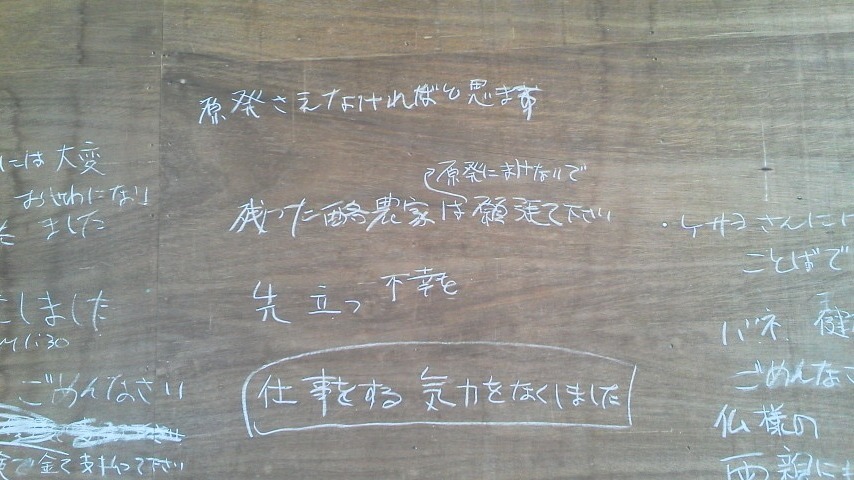 原発さえなければと思ます
原発にまけないで
残った酪農家は願張て下さい
先立つ不幸を
仕事をする気力をなくしました
には大変
おせわになり
ました
しました
1:30
ごめんなさい
で全て支払って下さい
・ケサヨさんには
ことばで
バネ 健
ごめんなさ
仏様の
両親にも